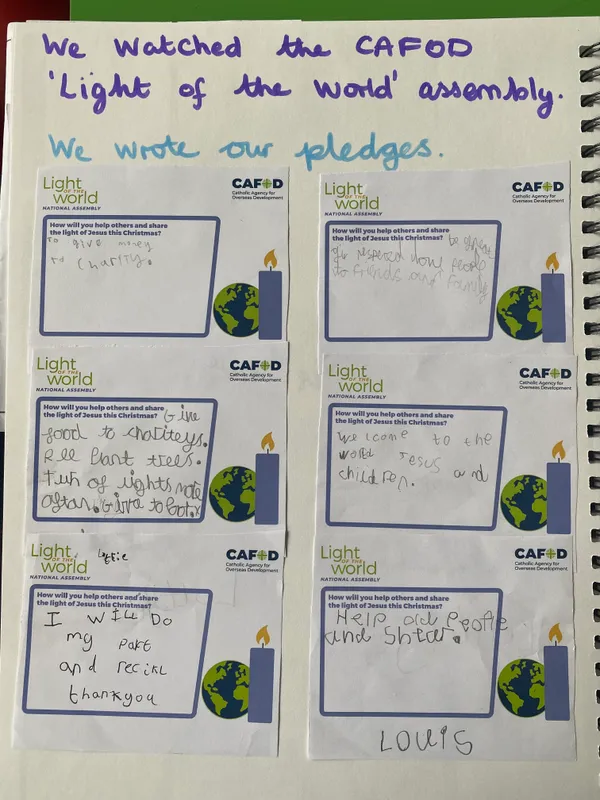 We watched the CAFOD
'Light of the world' assembly.
We wrote our pledges.
Light
OF THE
world
NATIONAL ASSEMBLY
CAFOD
Catholic Agency for
Overseas Development
How will you help others and share
the light of Jesus this Christmas?
to give money
to charity.
Light
OF THE
world
NATIONAL ASSEMBLY
CAFOD
Catholic Agency for
Overseas Development
How will you help others and share
the light of Jesus this Christmas?
people
to friends and family
Light
OF THE
world
NATIONAL ASSEMBLY
CAFOD
Catholic Agency for
Overseas Development
How will you help others and share
the light of Jesus this Christmas? Give
food to chariteys.
Plant trees.
Turn of lights more
Light
OF THE
world
NATIONAL ASSEMBLY
CAFOD
Catholic Agency for
Overseas Development
How will you help others and share
the light of Jesus this Christmas?
Welcome to the
world Jesus and
children.
Light
OF THE
world
NATIONAL ASSEMBLY
Lottie
CAFOD
Catholic Agency for
Overseas Development
How will you help others and share
the light of Jesus this Christmas?
I will Do
my part
and recikl
thankyou
Light
OF THE
world
NATIONAL ASSEMBLY
CAFOD
Catholic Agency for
Overseas Development
How will you help others and share
the light of Jesus this Christmas?
Help old People
and
LOUIS